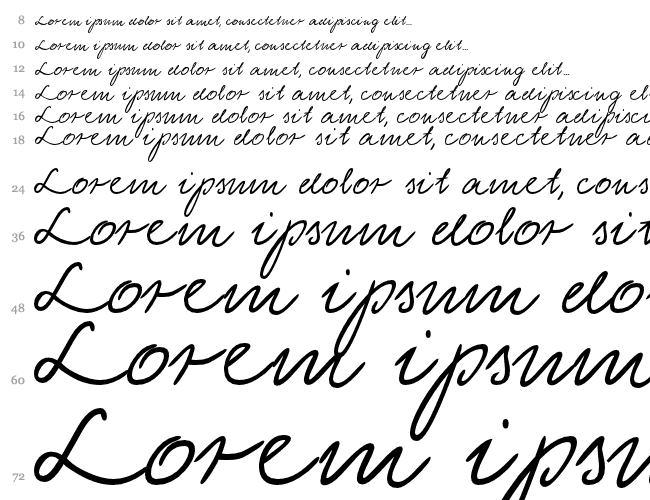 8 Lorem ipsum dolor sit amet, consectetuer adipiscing elit...
10 Lorem ipsum dolor sit amet, consectetuer adipiscing elit...
12 Lorem ipsum dolor sit amet, consectetuer adipiscing elit...
14 Lorem ipsum dolor sit amet, consectetuer adipiscing el
16 Lorem ipsum dolor sit amet, consectetuer adipisci
18 Lorem ipsum dolor sit amet, consectetuer ad
24 Lorem ipsum dolor sit amet, cons
36 Lorem ipsum dolor sit
48 Lorem ipsum dolo
60 Lorem ipsum
72 Lorem ipsu